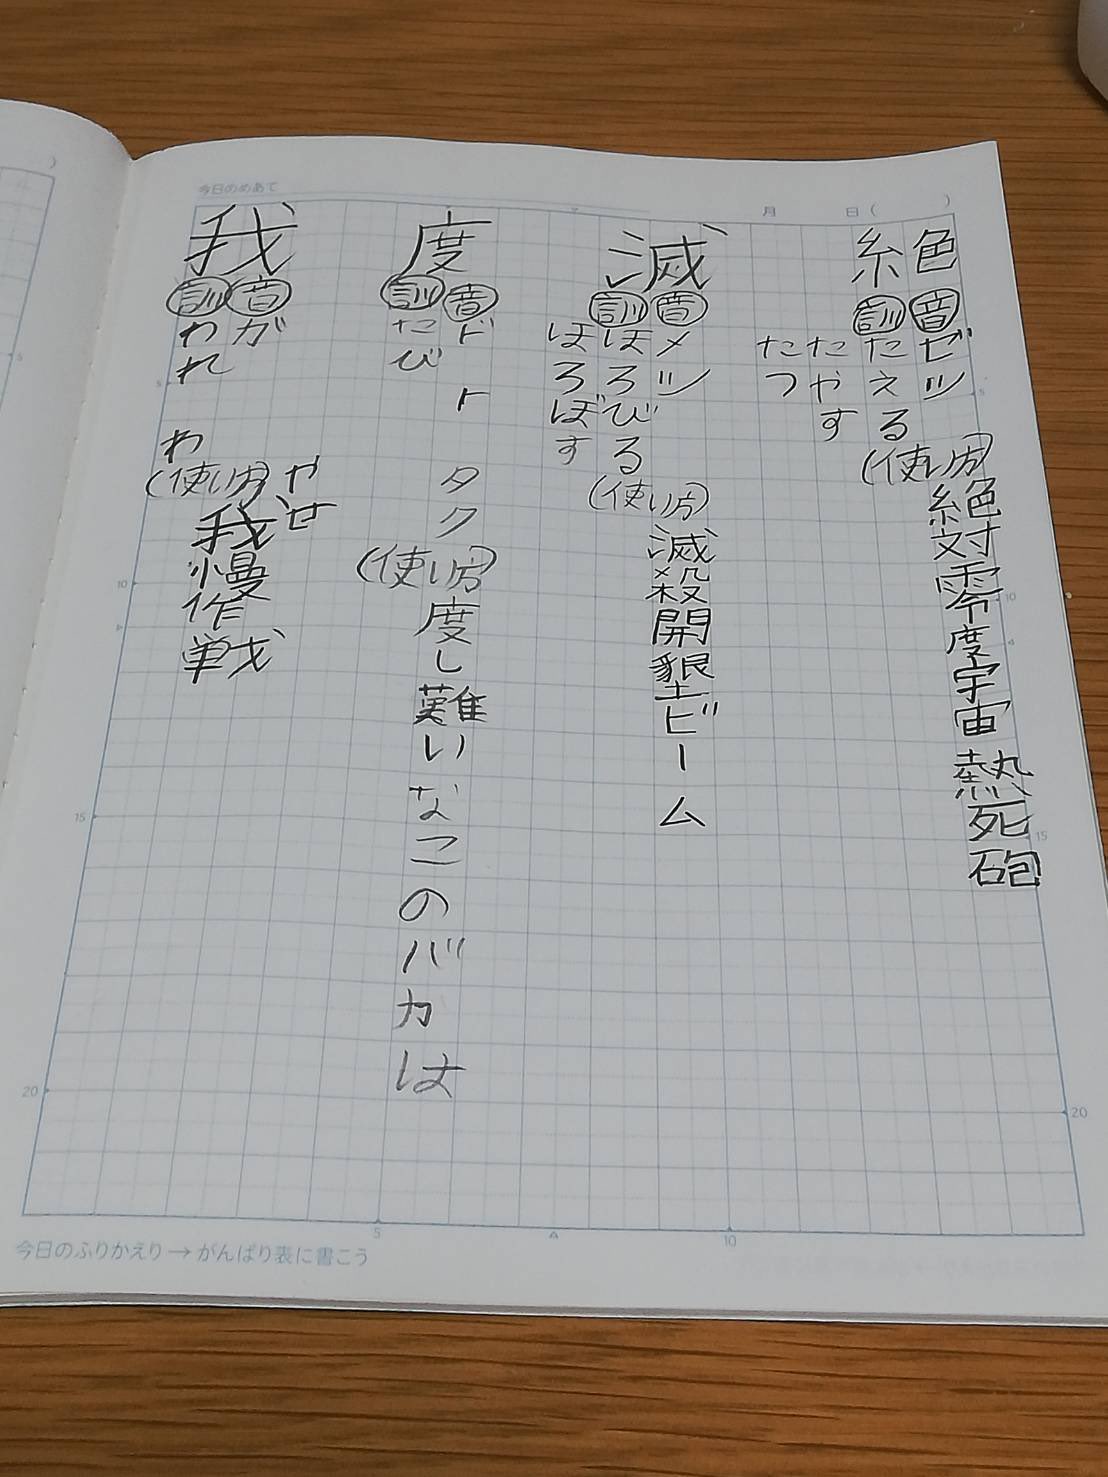 今日のめあて
月 日( )
絶
音 ゼツ
訓 たえる
たやす
たつ
(使い方)
絶対零度宇宙熱死砲
滅
音 メツ
訓 ほろびる
ほろぼす
(使い方)
滅殺開墾ビーム
度
音 ド ト タク
訓 たび
(使い方)
度し難いなこのバカは
我
音 ガ
訓 われ わ
(使い方)
我慢作戦
やせ
5
10
15
20
5
10
15
20
5
10
今日のふりかえり→がんばり表に書こう